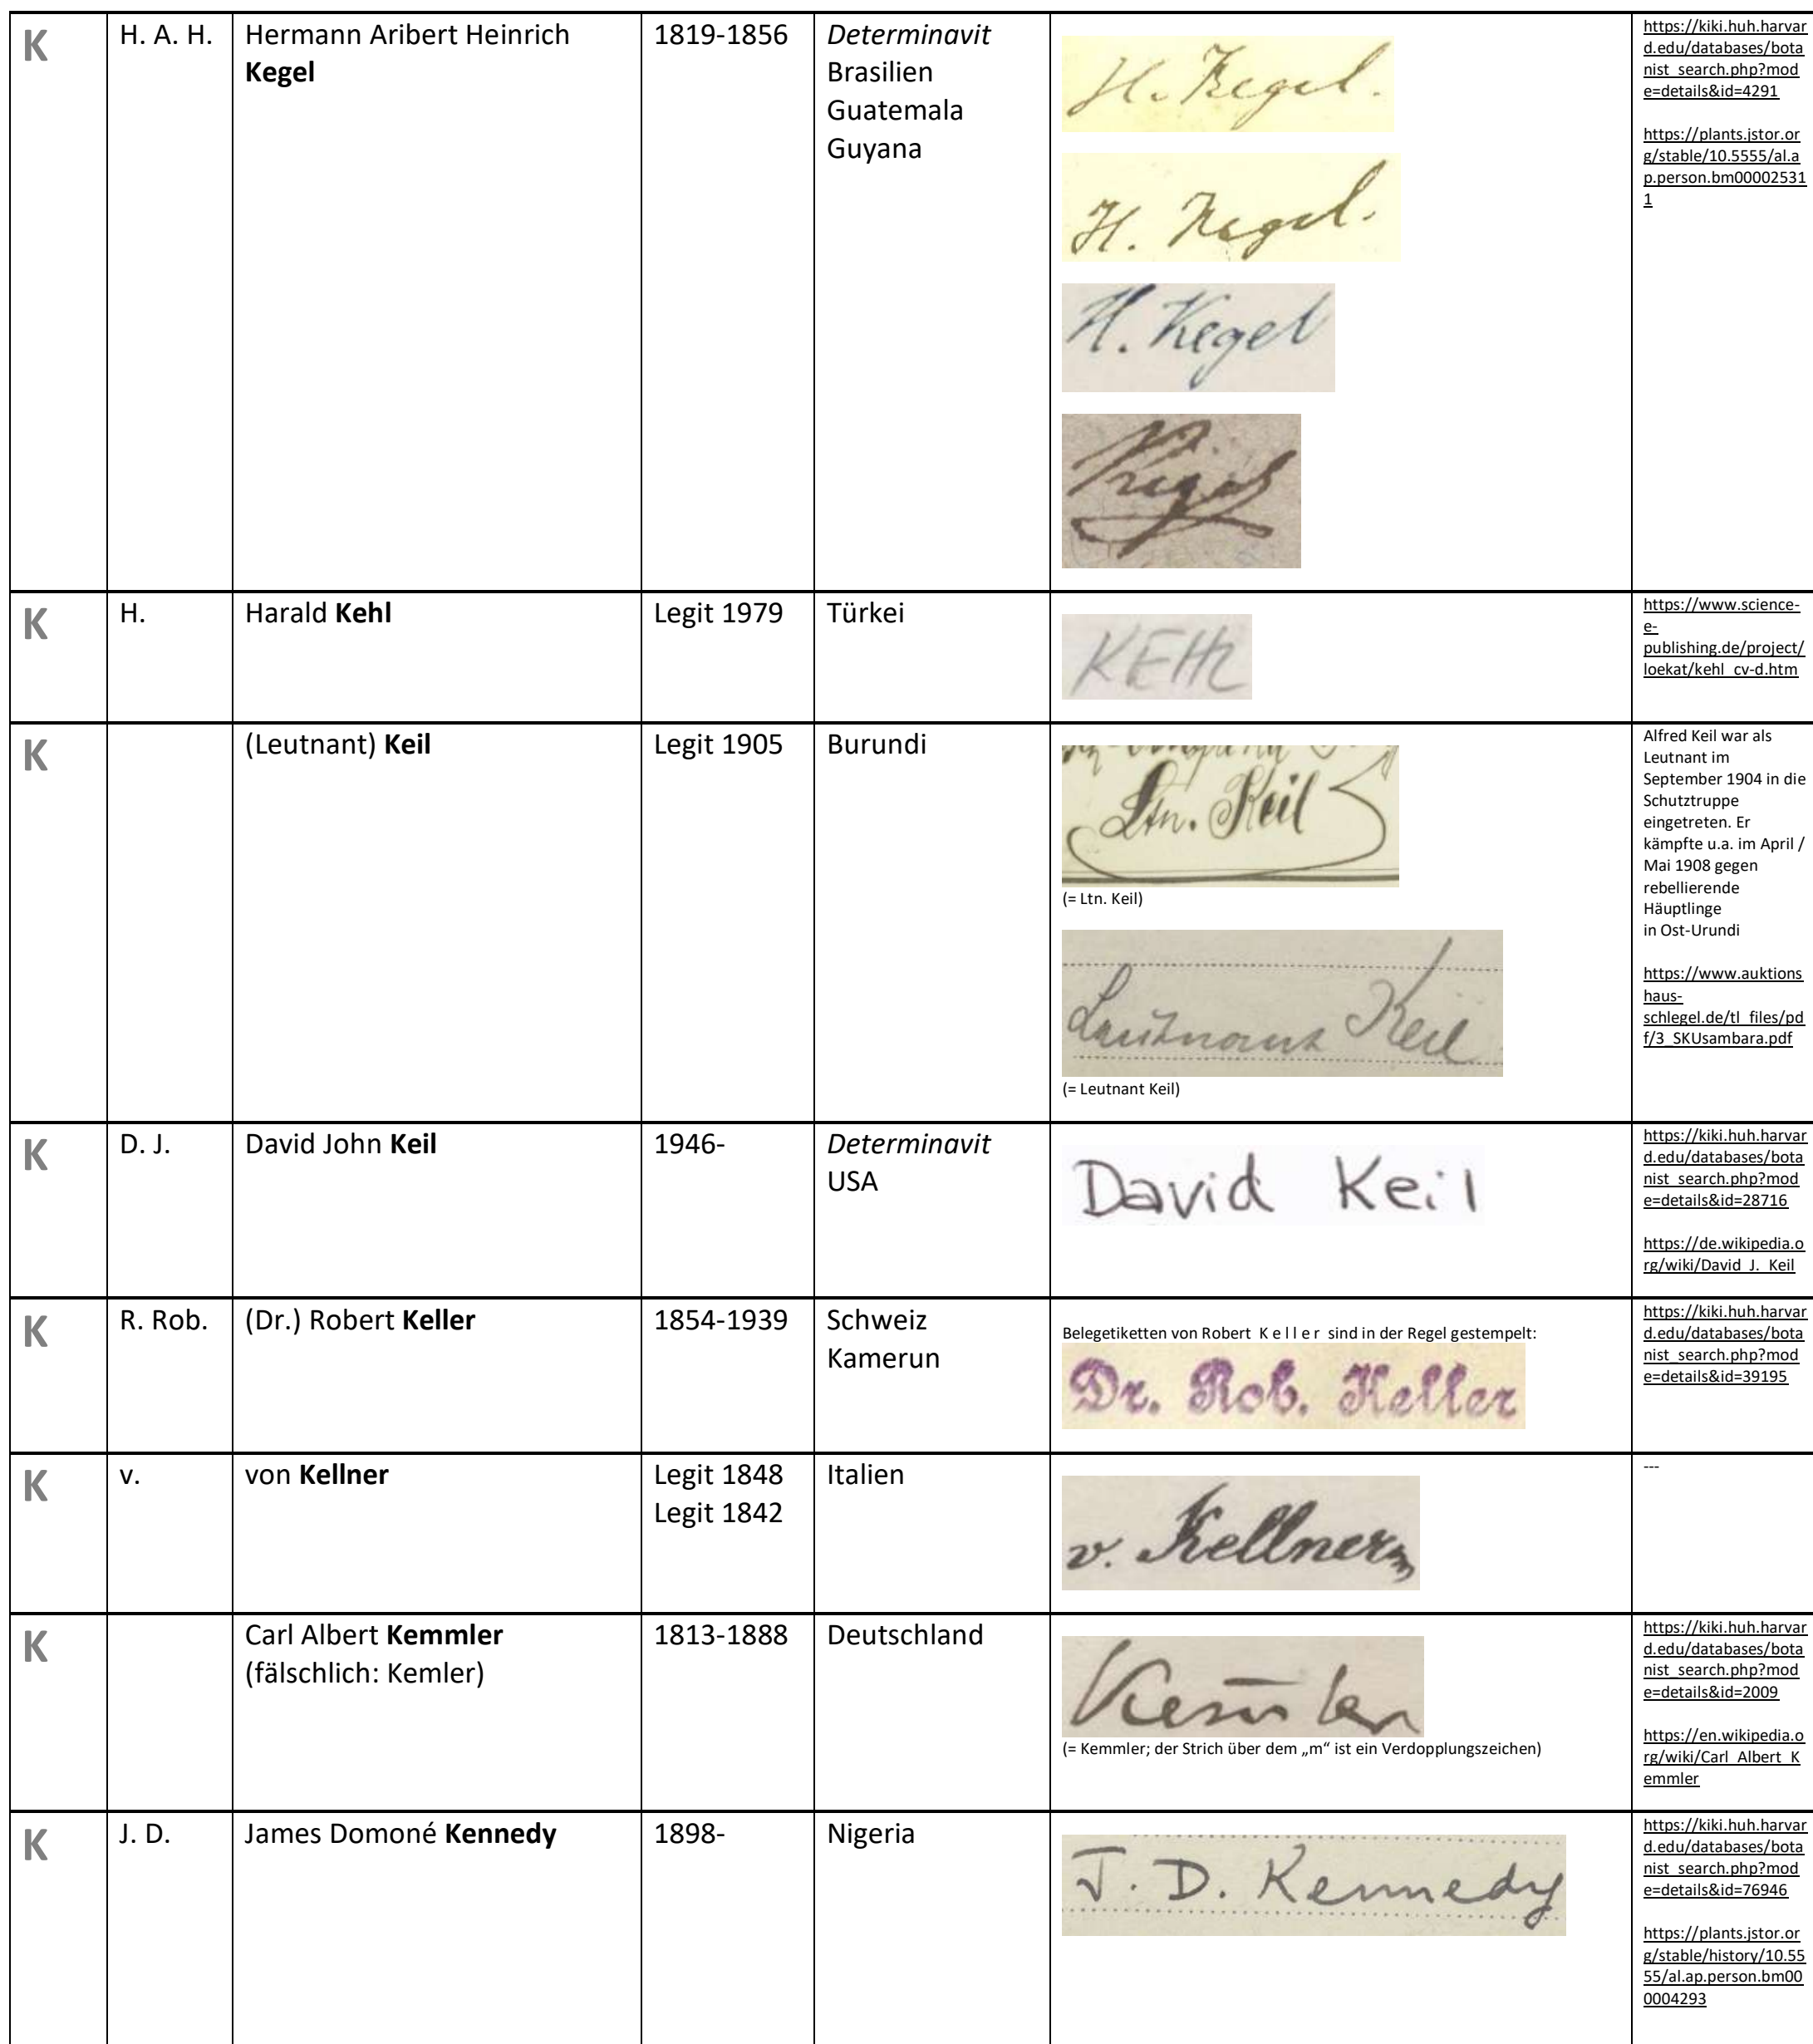 K
H. A. H.
Hermann Aribert Heinrich
Kegel
1819-1856
Determinavit
Brasilien
Guatemala
Guyana
H. Kegel.
H. Kegel.
H. Kegel
Kegel
https://kiki.huh.harvar
d.edu/databases/bota
nist_search.php?mod
e=details&id=4291
https://plants.jstor.or
g/stable/10.5555/al.a
p.person.bm00002531
1
K
H.
Harald Kehl
Legit 1979
Türkei
KEHL
https://www.science-
e-
publishing.de/project/
loekat/kehl_cv-d.htm
K
(Leutnant) Keil
Legit 1905
Burundi
Ltn. Keil
(= Ltn. Keil)
Leutnant Keil
(= Leutnant Keil)
Alfred Keil war als
Leutnant im
September 1904 in die
Schutztruppe
eingetreten. Er
kämpfte u.a. im April /
Mai 1908 gegen
rebellierende
Häuptlinge
in Ost-Urundi
https://www.auktions
haus-
schlegel.de/tl_files/pd
f/3_SKUsambara.pdf
K
D. J.
David John Keil
1946-
Determinavit
USA
David Keil
https://kiki.huh.harvar
d.edu/databases/bota
nist_search.php?mod
e=details&id=28716
https://de.wikipedia.o
rg/wiki/David_J._Keil
K
R. Rob.
(Dr.) Robert Keller
1854-1939
Schweiz
Kamerun
Belegetiketten von Robert K e l l e r sind in der Regel gestempelt:
Dr. Rob. Keller
https://kiki.huh.harvar
d.edu/databases/bota
nist_search.php?mod
e=details&id=39195
K
v.
von Kellner
Legit 1848
Legit 1842
Italien
v. Kellner
---
K
Carl Albert Kemmler
(fälschlich: Kemler)
1813-1888
Deutschland
Kem̅ler
(= Kemmler; der Strich über dem „m“ ist ein Verdopplungszeichen)
https://kiki.huh.harvar
d.edu/databases/bota
nist_search.php?mod
e=details&id=2009
https://en.wikipedia.o
rg/wiki/Carl_Albert_K
emmler
K
J. D.
James Domoné Kennedy
1898-
Nigeria
J. D. Kennedy
https://kiki.huh.harvar
d.edu/databases/bota
nist_search.php?mod
e=details&id=76946
https://plants.jstor.or
g/stable/history/10.55
55/al.ap.person.bm00
0004293